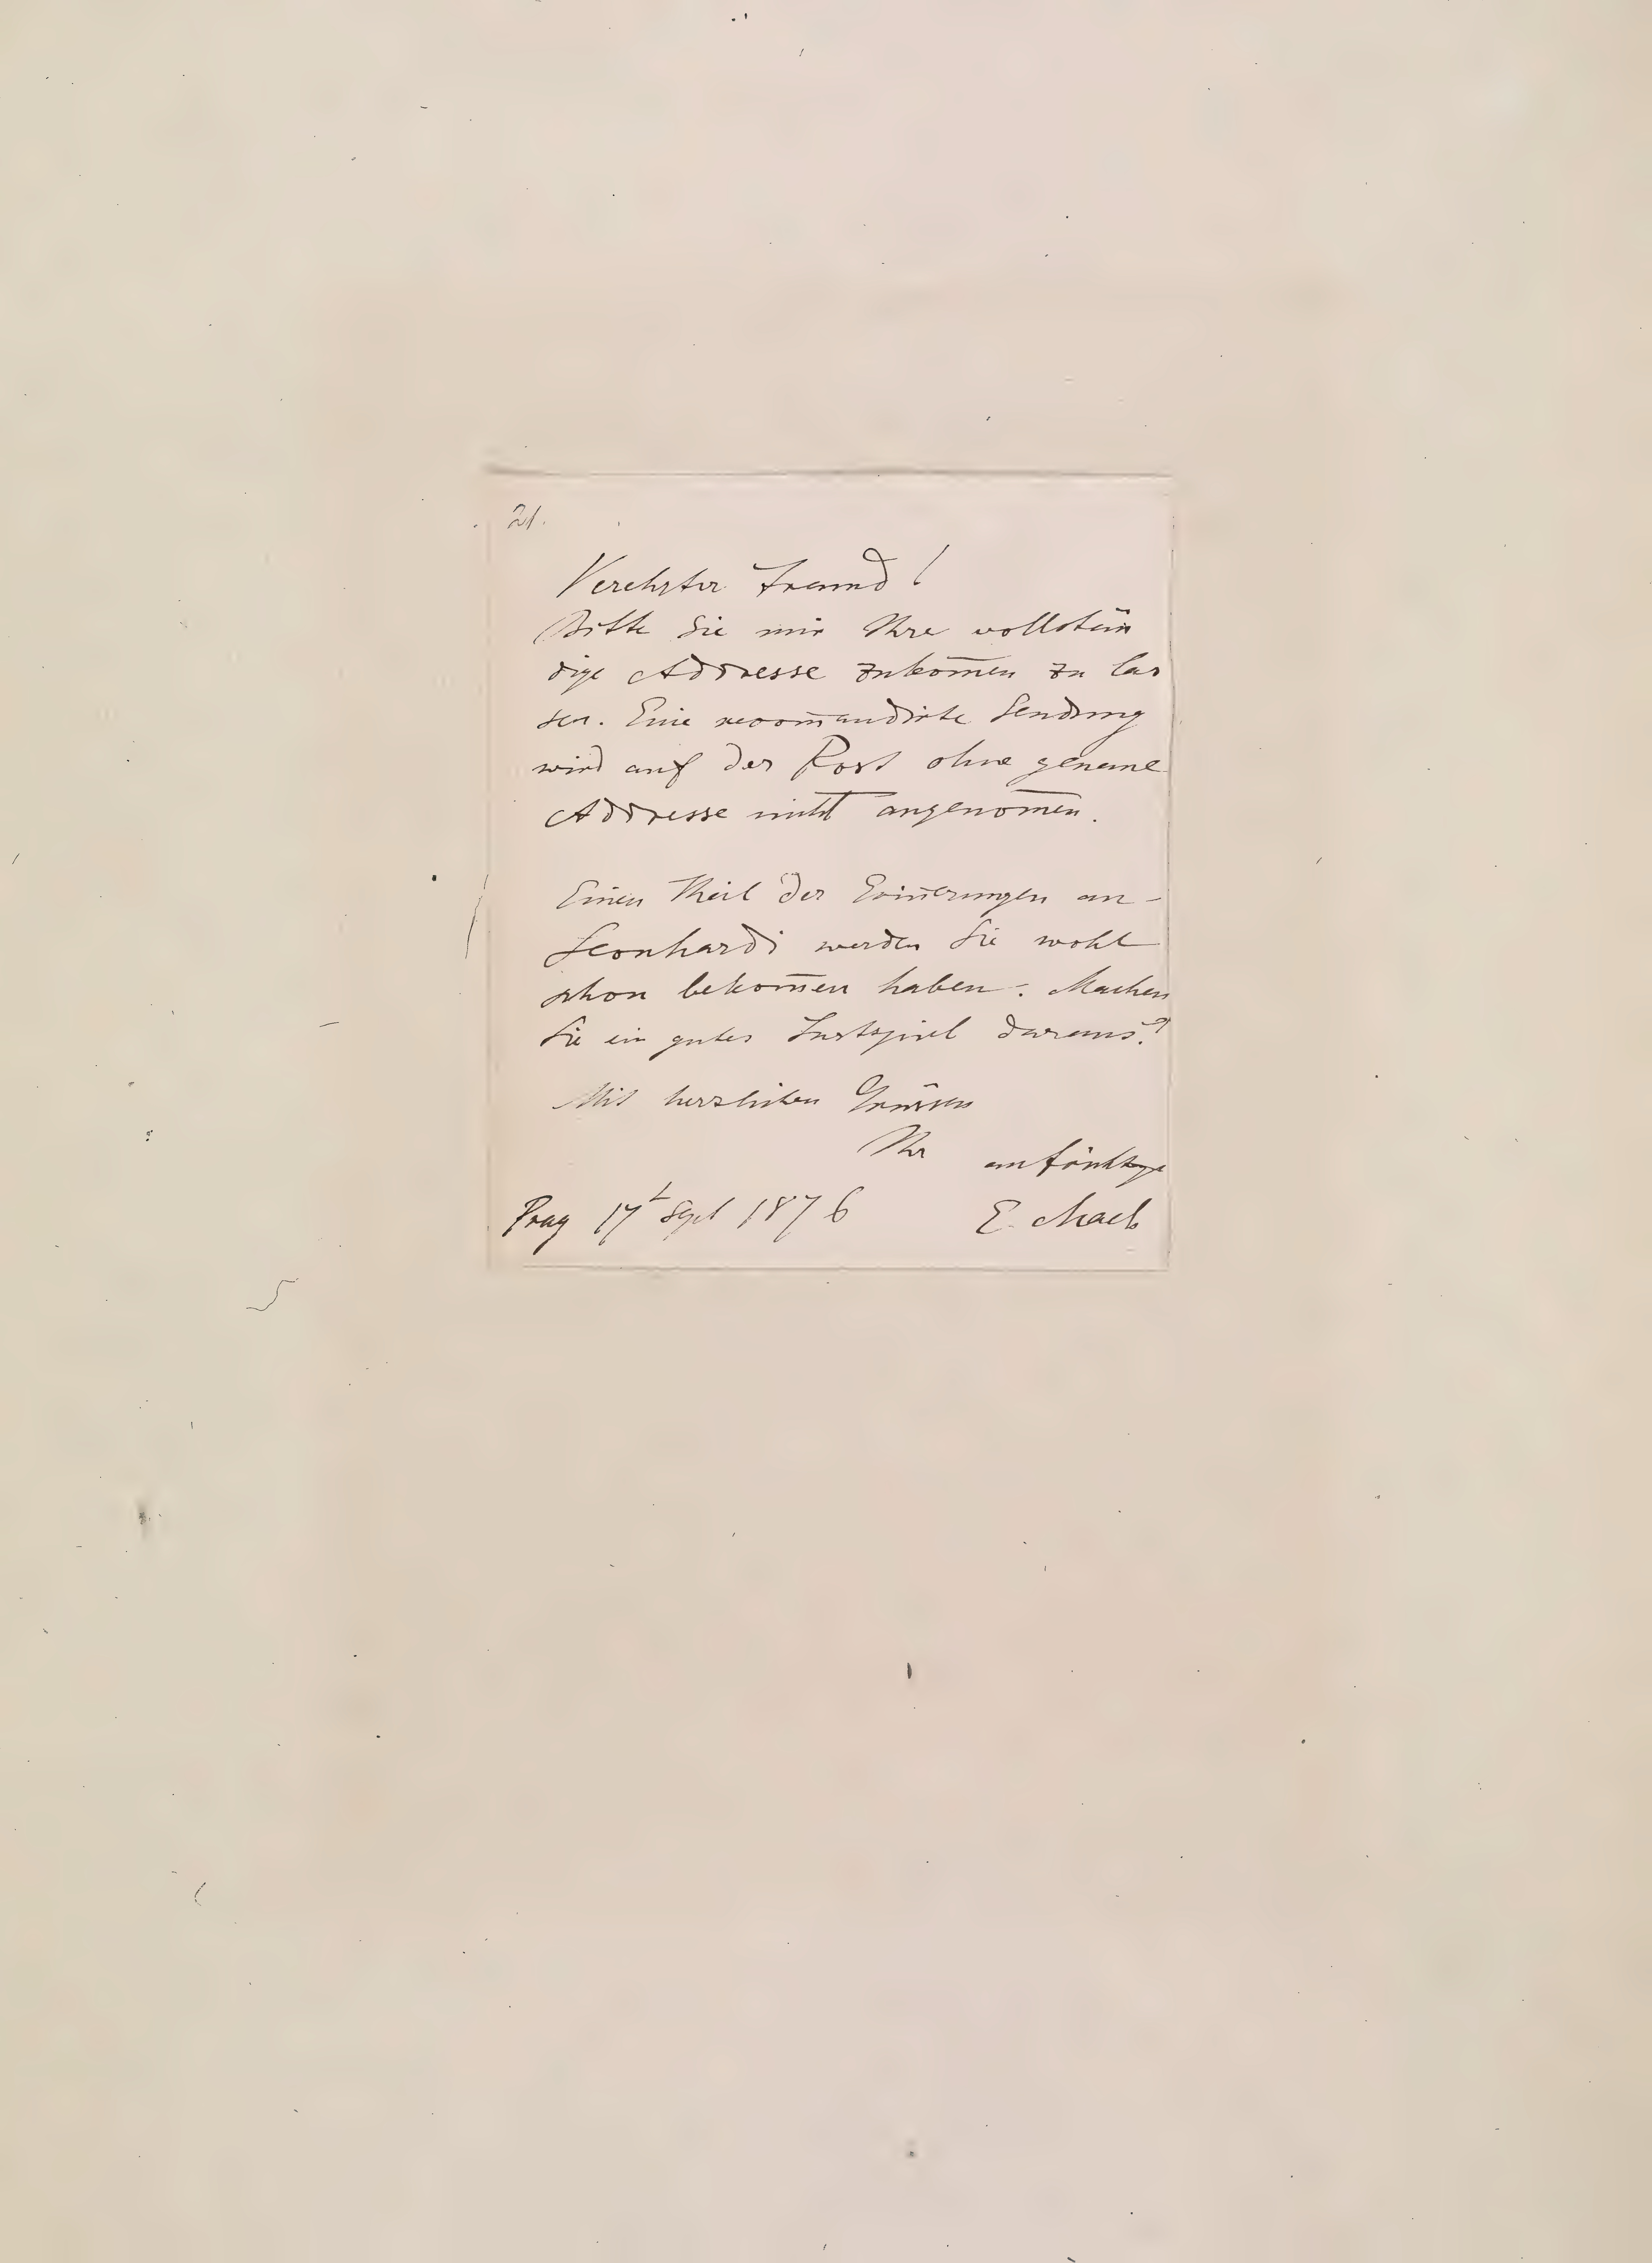 21.
Verehrter Freund!
Bitte Sie mir Ihre vollstän
dige Addresse zukom̄en zu las
sen. Eine recom̄andirte Sendung
wird auf der Post ohne genaue
Addresse nicht angenom̄en.
Einen Theil der Erin̄erungen an
Leonhardi werden Sie wohl
schon bekom̄en haben. Machen
Sie ein gutes Lustspiel daraus?
Mit herzlichen Grüssen
Ihr aufrichtiger
Prag 17t Sept 1876 E. Mach